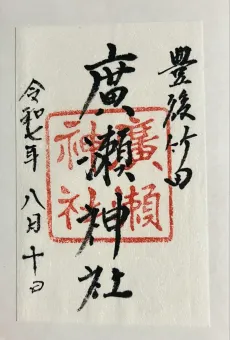 豊後竹田
廣瀬神社
廣瀬神社
令和七年 八月 十日